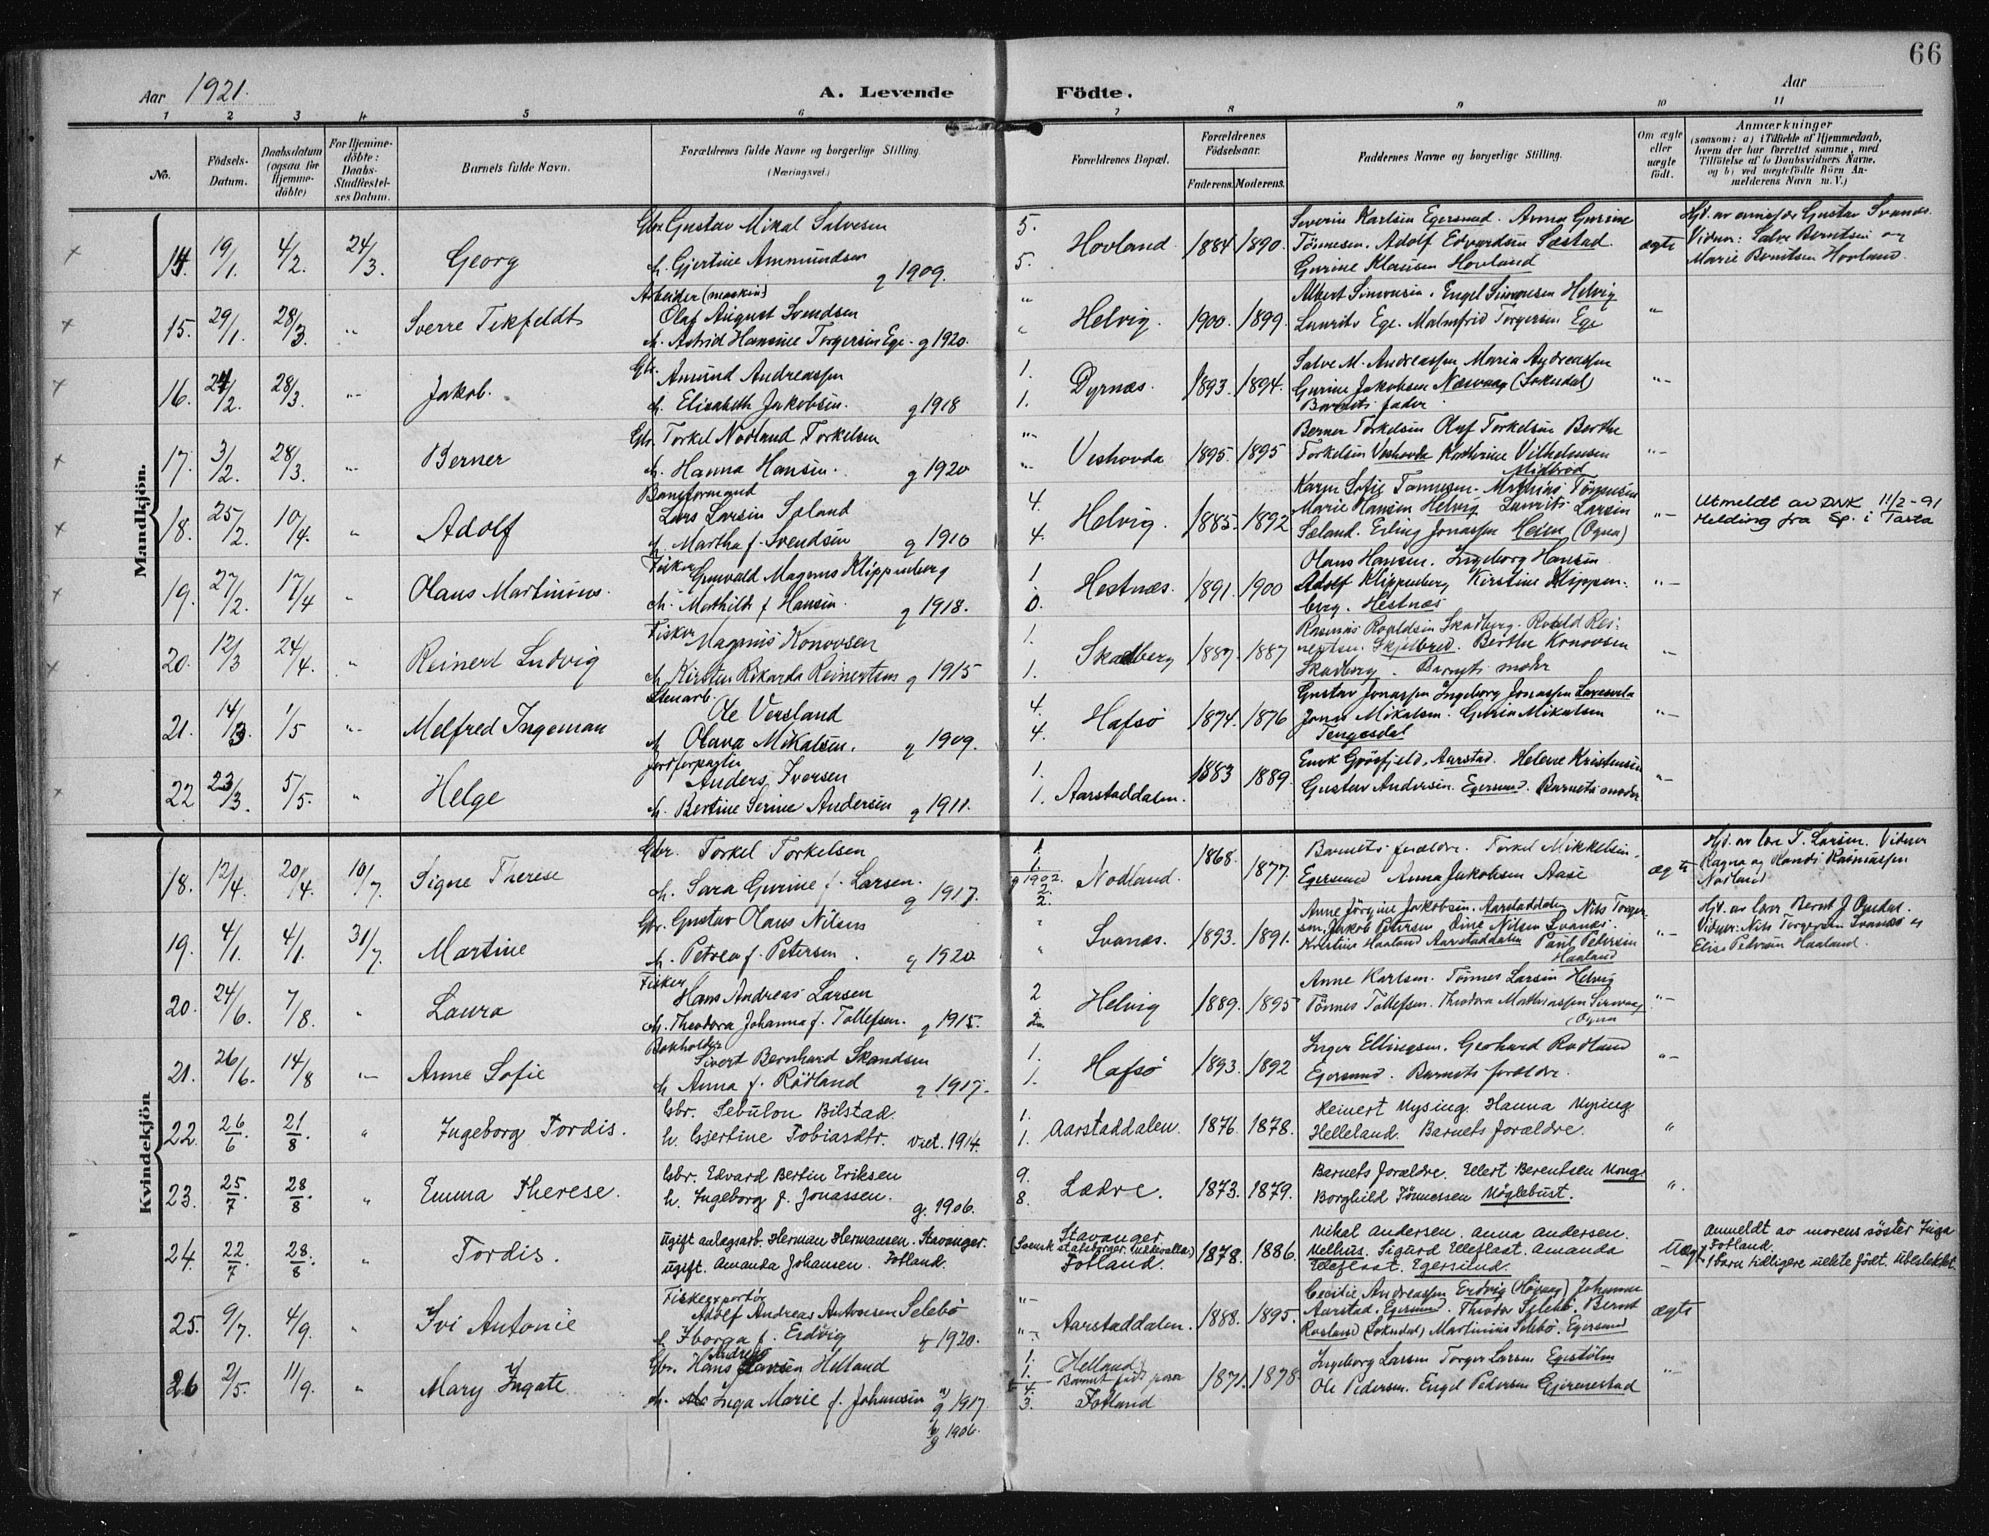 66
Aar 1921.
A. Levende Födte.
Aar
1 2 3 4 5 6 7 8 9 10 11
No.
Födsels-Datum.
Daabsdatum (ogsaa for Hjemme-döbte)
For Hjemme-döbte: Daabs-Stadfæstel-ses Datum.
Barnets fulde Navn.
Forældrenes fulde Navne og borgerlige Stilling. (Næringsvei.)
Forældrenes Bopæl.
Forældrenes Födselsaar.
Faderens. Moderens.
Faddernes Navne og borgerlige Stilling.
Om ægte eller uægte født.
Anmærkninger
(saasom: a) i Tilfælde af Hjemmedaab, hvem der har forrettet samme, med Tilføielse af to Daabsvidners Navne, og b) ved uægtefödte Börn Anmelderens Navn m. V.)
Mandkjön.
14. 19/1. 4/2. 24/3. Georg
Gbr Gustav Mikal Salvesen
h. Gjertine Ammundsen g 1909.
5. 5. Hovland. 1884 1890.
Severin Karlsen Egersund. Anna Gurine
Tönnesen. Adolf Edvardsen Sæstad.
Gurine Klausen Hovland
ægte
Hjd. av Gustav Svanes.
Vidner: Salve Berntsen og
Marie Berntsen Hovland.
15. 29/1. 28/3. " Sverre Tekfeldt
Arbeider (maskin)
Olaf August Svendsen
h. Astrid Hansine Torgersen Ege. g 1920.
" " Helvig. 1900. 1899.
Albert Simonsen. Engel Simonsen Helvig
Laurits Ege. Malmfrid Torgersen Ege
"
16. 24/2. 28/3. " Jakob.
Gbr. Amund Andreassen
h. Elisabeth Jakobsen. g 1918
1. 1. Dyrnæs. 1893. 1894.
Salve M. Andreassen Maria Andreassen
Gurine Jakobsen Næsvaag (Sokndal)
Barnets fader.
"
17. 3/2. 28/3. " Berner
Gbr. Torkel Nodland Torkelsen
h. Hanna Hansen. g 1920
" " Veshovda 1895. 1895
Berner Torkelsen Olaf Torkelsen Berthe
Torkelsen Veshovda Kathrine Vilhelmsen
Midbrød
"
18. 25/2. 10/4. " Adolf
Baneformand
Lars Larsen Sæland
h. Martha f. Svendsen g 1910
4. 4. Helvig. 1885. 1892
Karen Sofie Tønnesen. Mathias Tönnesen
Marie Hansen Helvig Laurits Larsen
Sæland. Erling Jonassen Heien (Ogna)
"
Utmeldt av DNK 11/2-91
Melding fra Sp. i Tasta
19. 27/2. 17/4 " Olaus Martinius.
Fisker Grunvald Magnus Klippenberg
h. Mathilde f Hansen. g 1918.
1 0. Hestnæs. 1891. 1900
Olaus Hansen. Ingeborg Hansen
Adolf Klippenberg Kirstine Klippen-
berg. Hestnæs
"
20. 12/3 24/4. " Reinert Ludvig
Fisker Magnus Konovsen
h. Kirsten Rikarda Reinertsen g 1915
1. 1. Skadberg 1887. 1887
Rasmus Roaldsen Skadberg. Roald Rei-
nertsen. Skjelbred. Berthe Konovsen
Skadberg. Barnets moder
"
21. 14/3. 1/5 " Melfred Ingeman
Stenarb. Ole Versland
h. Olava Mikalsen. g 1909.
4. 4. Hafsö 1874. 1876
Gustav Jonassen Ingeborg Jonassen
Jonas Mikalsen. Guria Mikalsen
Tengesdal
"
22 23/3. 5/5. " Helge
Jordforpagter
Anders Iversen
h. Bertine Serine Andersen g 1911.
1. 1. Aarstaddalen. 1883 1889.
Enok Grösfjeld, Aarstad. Helene Kristensen
Gustav Andersen. Egersund. Barnets moder
"
Kvindekjön
18. 12/4. 20/4. 10/7 Signe Therese
Gbr. Torkel Torkelsen
h. Sara Gurine f. Larsen. g 1917.
1. 1. g 1902 2. 2. Nodland. 1868. 1877.
Barnets forældre. Torkel Mikkelsen.
Egersund Anna Jakobsen Aase
ægte
Hjd. av T. Larsen. Vidner
Ragna og Kandi Rasmussen
Nodland
19. 4/1. 4/1. 31/7 Martine
Gbr. Gustav Olaus Nilsen
h. Petrea f. Petersen. g 1920.
" " Svanæs. 1893. 1891.
Anne Jörgine Jakobsen. Aarstaddalen Nils Torger-
sen. Jakob Petersen Line Nilsen Svanæs.
Kristine Haaland Aarstaddalen Paul Petersen
Haaland
"
Hjd. av lærer Bernt J. Opedal.
Vidner: Nils Torgersen Svanæs og
Elise Petersen Haaland.
20. 24/6. 7/8. " Laura
Fisker Hans Andreas Larsen
h. Theodora Johanna f. Tollefsen. g 1915.
2 2 Helvig 1889. 1895
Anne Karlsen. Tönnes Larsen Helvig
Tönnes Tollefsen. Theodora Mathiassen Sirevaag
(Ogna
"
21. 26/6. 14/8 " Anne Sofie
Bokholder
Sivert Bernhard Skandsen
h Anna f. Rödland g 1917.
1. 1. Hafsö 1893. 1892
Inger Ellingsen. Gerhard Rödland
Egersund. Barnets forældre.
"
22. 26/6 21/8. " Ingeborg Tordis.
Gbr. Sebulon Bilstad.
h. Gjertine Tobiasdtr. viet. 1914.
1. 1. Aarstaddalen. 1876. 1878.
Reinert Nysing. Hanna Nysing
Helleland. Barnets forældre.
"
23. 25/7 28/8. " Emma Therese.
Gbr. Edvard Bertin Eriksen
h. Ingeborg f. Jonassen. g. 1906.
9. 8. Lædre. 1873. 1879.
Barnets forældre. Ellert Berentsen Mong
Borghild Tönnessen Nöglebust.
".
24. 22/7 28/8. " Tordis.
ugift anlægsarb. Herman Hermansen. Stavanger.
ugift. Amanda Johansen. Fotland.
Stavanger
(Svensk statsborger. Uddevalla.)
Fotland. 1878. 1886.
Mikal Andersen. Anna Andersen.
Melhus. Sigurd Elleflaat. Amanda
Elleflaat. Egersund.
Uægte
Anmeldt av morens söster Inga
Fotland.
1 barn tidligere uekte födt. Ubeslektet.
25. 9/7. 4/9. " Ivi Antonie
Fiskeexportör
Adolf Andreas Antonsen Selebö
h. Iborga f. Erdvig g 1920.
" " Aarstaddalen. 1888. 1895.
Cecilie Andreassen Erdvig (Höivaag) Johanne
Aarstad. Egersund. Theodor Selebö. Bernt
Rosland (Sokndal) Martinius Selebö. Egersund
ægte
26 2/5. 11/9. " Mary Ingate
Gbr. Hans Andreas Helland
h. Inga Marie f. Johansen g 1917
g 1906.
1. 1. 4. 3. Helland)
Fotland 1871. 1878
Ingeborg Larsen Torger Larsen Egestölen
Ole Pedersen. Engel Pedersen Gjermestad
"